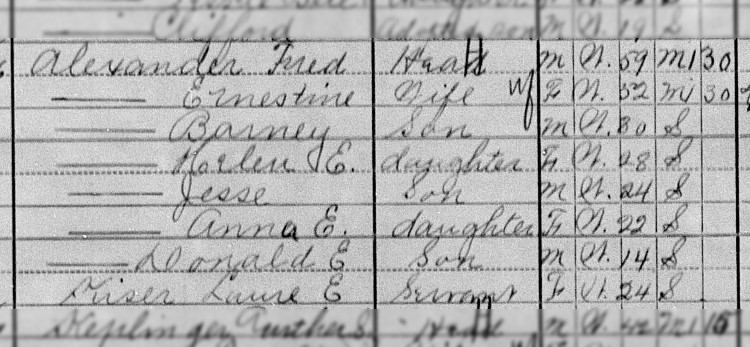 Clifford
Alexander Fred Head M W. 59 M1 30
—— Ernestine Wife F W. 52 M1 30
—— Barney Son M W. 30 S
—— Helen E. daughter F W. 28 S
—— Jesse Son M W. 24 S
—— Anna E. daughter F W. 22 S
—— Donald E Son M W. 14 S
Kiser Laura E Servant F W. 24 S
Head M W. M1